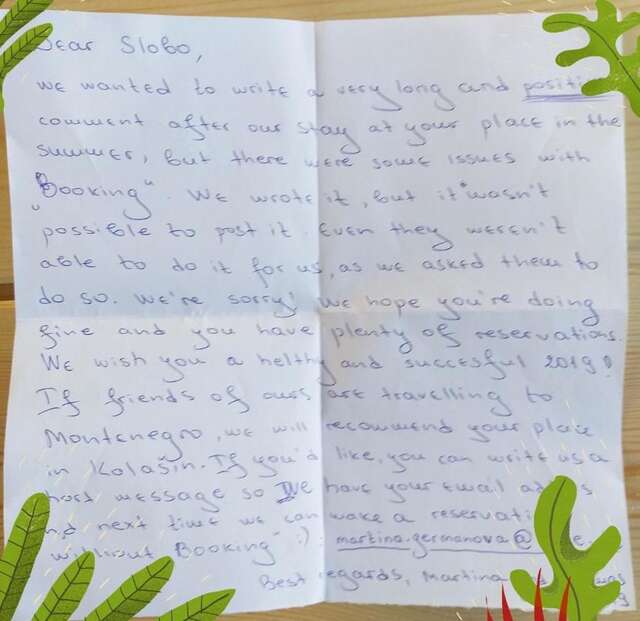 Dear Slobo,
we wanted to write a very long and positi
comment after our stay at your place in the
summer, but there were some issues with
"Booking". We wrote it, but it wasn't
possible to post it. Even they weren't
able to do it for us, as we asked them to
do so. We're sorry! We hope you're doing
fine and you have plenty of reservations.
We wish you a helthy and succesful 2019!
If friends of ours are travelling to
Montenegro, we will recommend your place
in Kolašin. If you'd like, you can write us a
short message so we have your email
and next time we can make a reservati
without "Booking" :)
martina.germanova@
Best regards, Martina